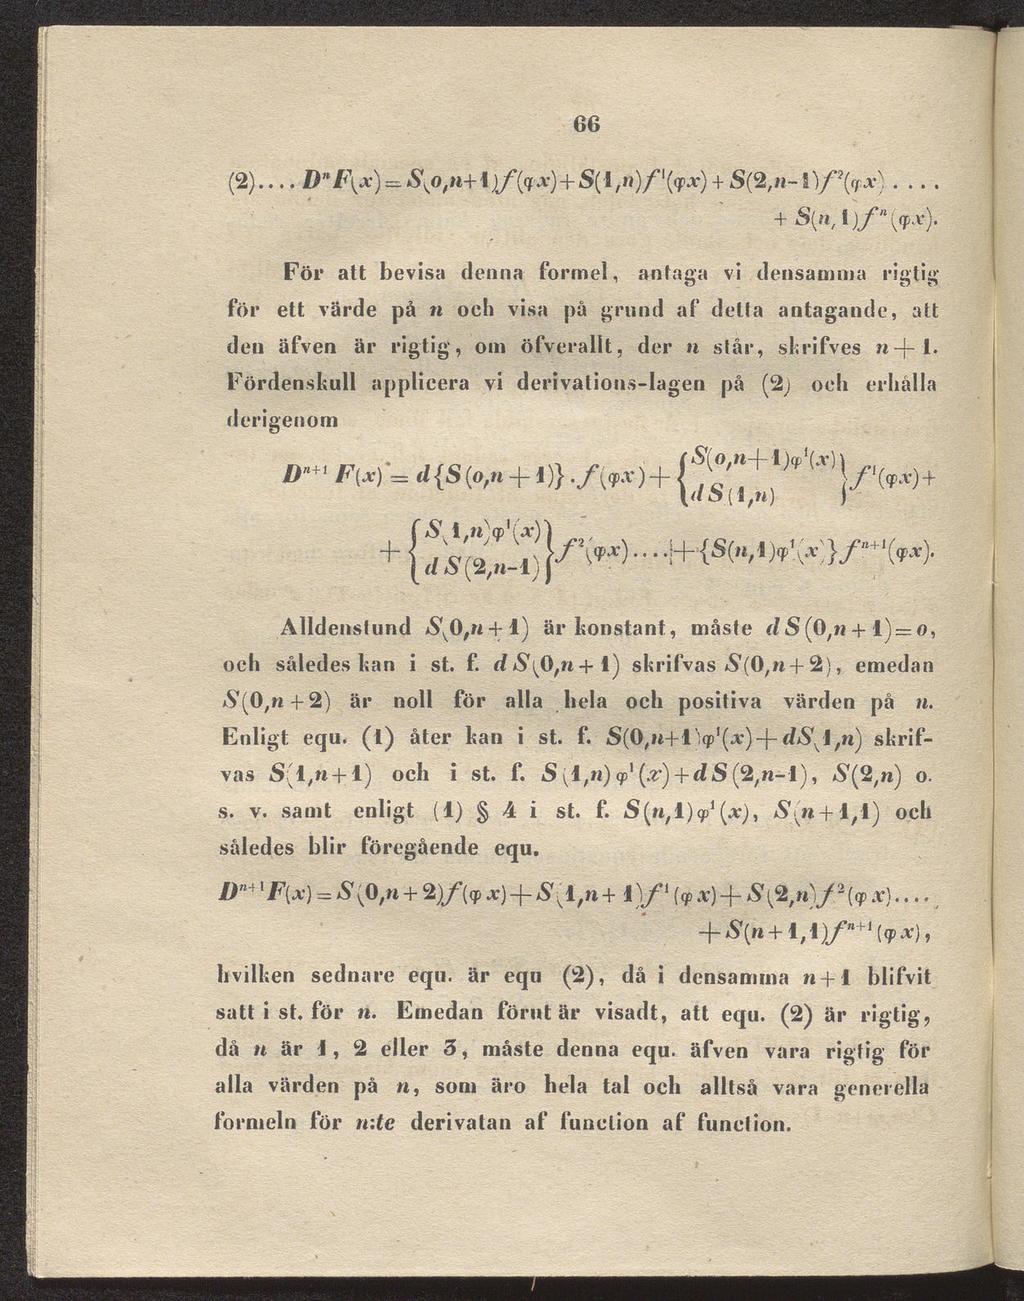 66
(2).... DⁿF(x) = S(o,n+1)f(φx)+S(1,n)f¹(φx) + S(2,n-1)f²(φx) ....
+ S(n,1)fⁿ(φx).
För att bevisa denna formel, antaga vi densamma rigtig
för ett värde på n och visa på grund af detta antagande, att
den äfven är rigtig, om öfverallt, der n står, skrifves n+1.
Fördenskull applicera vi derivations-lagen på (2) och erhålla
derigenom
Dⁿ⁺¹ F(x) = d{S(o,n+1)}.f(φx)+ {S(o,n+1)φ¹(x) dS(1,n)} f¹(φx)+
+ {S(1,n)φ¹(x) dS(2,n-1)} f²(φx)....+{S(n,1)φ¹(x)}fⁿ⁺¹(φx).
Alldenstund S(0,n+1) är konstant, måste dS(0,n+1)=o,
och således kan i st. f. dS(0,n+1) skrifvas S(0,n+2), emedan
S(0,n+2) är noll för alla hela och positiva värden på n.
Enligt equ. (1) åter kan i st. f. S(0,n+1)φ¹(x)+dS(1,n) skrif-
vas S(1,n+1) och i st. f. S(1,n)φ¹(x)+dS(2,n-1), S(2,n) o.
s. v. samt enligt (1) § 4 i st. f. S(n,1)φ¹(x), S(n+1,1) och
således blir föregående equ.
Dⁿ⁺¹F(x)=S(0,n+2)f(φx)+S(1,n+1)f¹(φx)+S(2,n)f²(φx)....
+S(n+1,1)fⁿ⁺¹(φx),
hvilken sednare equ. är equ (2), då i densamma n+1 blifvit
satt i st. för n. Emedan förut är visadt, att equ. (2) är rigtig,
då n är 1, 2 eller 3, måste denna equ. äfven vara rigtig för
alla värden på n, som äro hela tal och alltså vara generella
formeln för n:te derivatan af function af function.